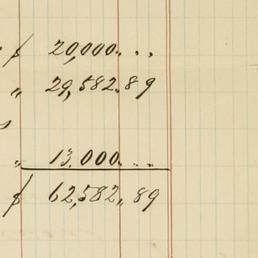 $ 20,000...
" 29,582.89
s
" 13,000...
$ 62,582.89